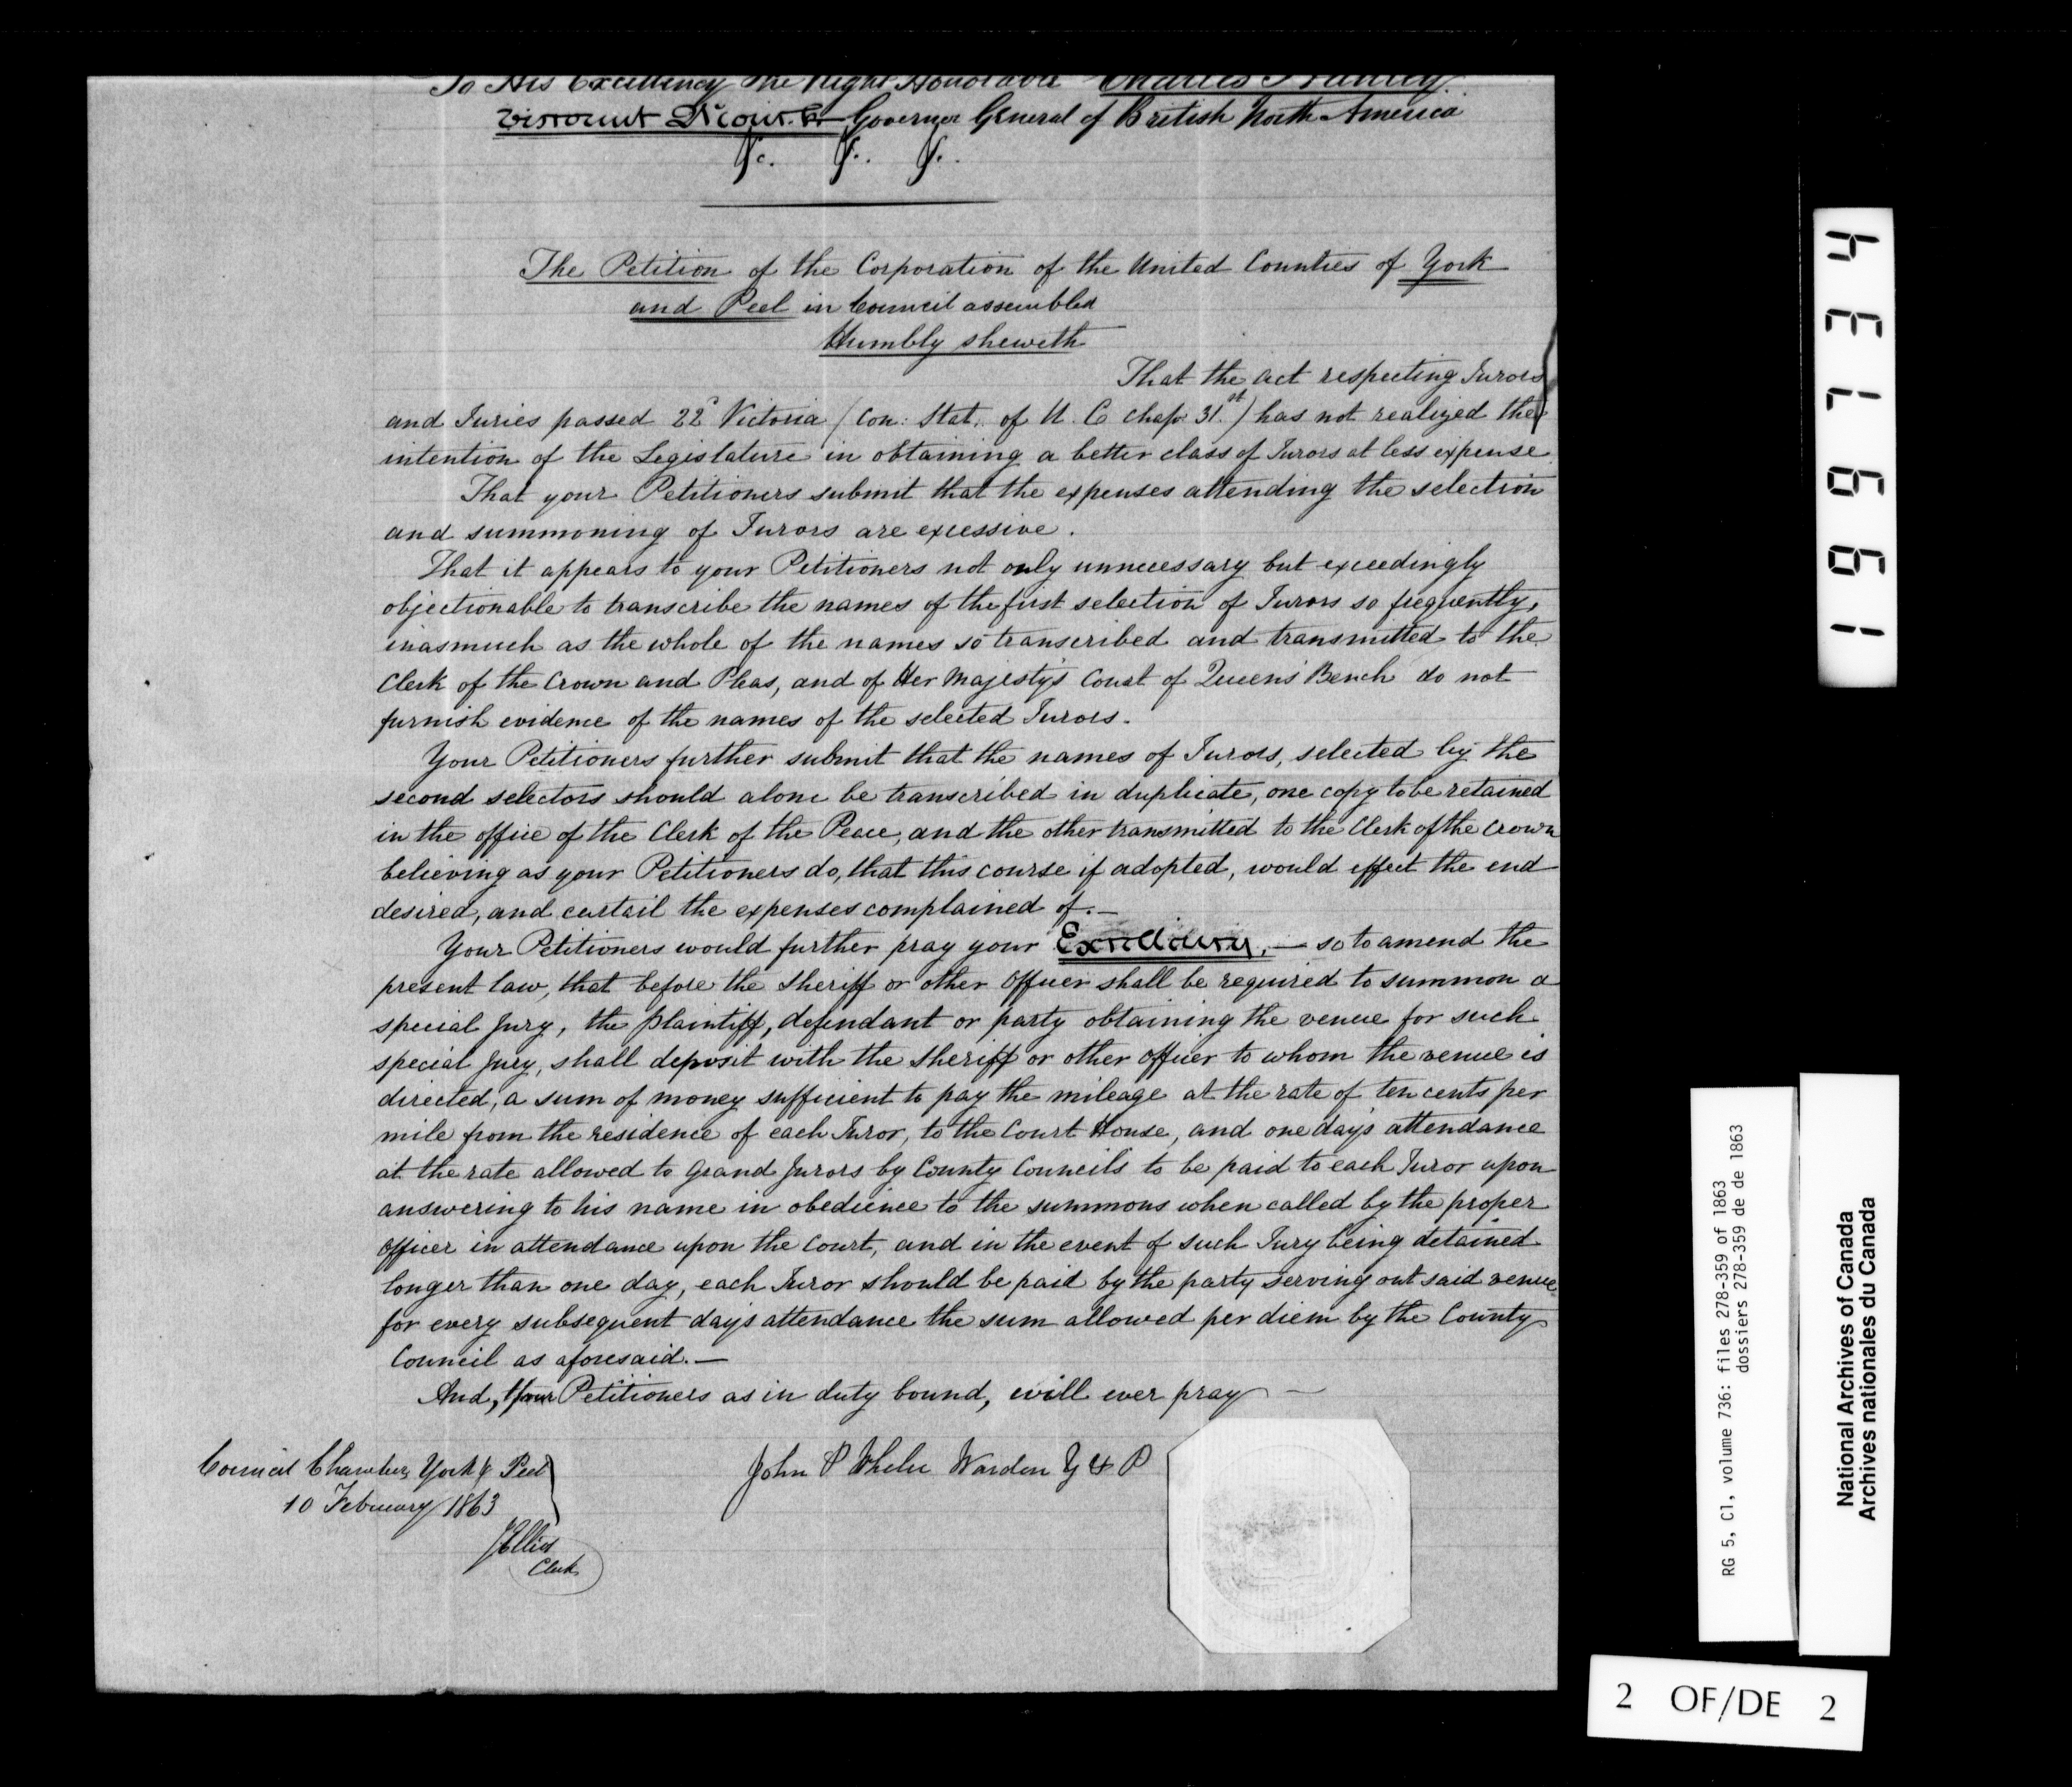 To His Excellency the Right Honorable Charles Stanley
Viscount Monck Governor General of British North America
&c. &. &.
The Petition of the Corporation of the United Counties of York
and Peel in Council assembled
Humbly sheweth
That the act respecting Jurors
and Juries passed 22d Victoria (Con: Stat. of U. C chap 31.st) has not realized the
intention of the Legislature in obtaining a better class of Jurors at less expense
That your Petitioners submit that the expenses attending the selection
and summoning of Jurors are excessive.
That it appears to your Petitioners not only unnecessary but exceedingly
objectionable to transcribe the names of the first selection of Jurors so frequently,
inasmuch as the whole of the names so transcribed and transmitted to the
Clerk of the Crown and Pleas, and of Her Majesty's Court of Queen's Bench do not
furnish evidence of the names of the selected Jurors.
Your Petitioners further submit that the names of Jurors, selected by the
second selectors should alone be transcribed in duplicate, one copy to be retained
in the office of the Clerk of the Peace, and the other transmitted to the Clerk of the Crown
believing as your Petitioners do, that this course if adopted, would effect the end
desired, and curtail the expenses complained of.—
Your Petitioners would further pray your Excellency,— so to amend the
present law, that before the Sheriff or other Officer shall be required to summon a
special Jury, the Plaintiff, defendant or party obtaining the venue for such
special Jury, shall deposit with the Sheriff or other Officer to whom the venue is
directed, a sum of money sufficient to pay the mileage at the rate of ten cents per
mile from the residence of each Juror, to the Court House, and one days attendance
at the rate allowed to Grand Jurors by County Councils to be paid to each Juror upon
answering to his name in obedience to the summons when called by the proper
Officer in attendance upon the Court, and in the event of such Jury being detained
longer than one day, each Juror should be paid by the party serving out said venue
for every subsequent days attendance the sum allowed per diem by the County
Council as aforesaid.—
And, Your Petitioners as in duty bound, will ever pray —
Council Chamber York & Peel
10 February 1863
John P Wheler Warden Y & P
J Elliot
Clerk
1 9 9 7 3 4
RG 5, C1, volume 736: files 278-359 of 1863
dossiers 278-359 de de 1863
National Archives of Canada
Archives nationales du Canada
2 OF/DE 2